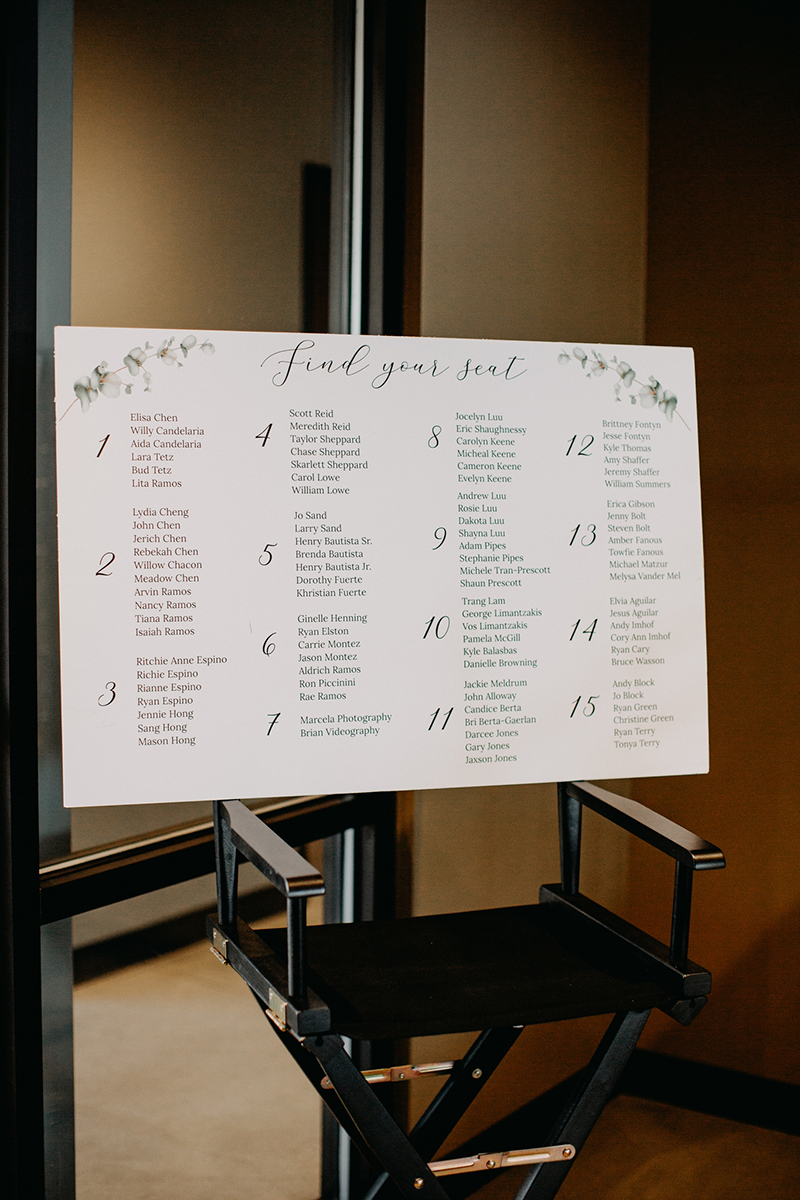 Find your seat
1
Elisa Chen
Willy Candelaria
Aida Candelaria
Lara Tetz
Bud Tetz
Lita Ramos
2
Lydia Cheng
John Chen
Jerich Chen
Rebekah Chen
Willow Chacon
Meadow Chen
Arvin Ramos
Nancy Ramos
Tiana Ramos
Isaiah Ramos
3
Ritchie Anne Espino
Richie Espino
Rianne Espino
Ryan Espino
Jennie Hong
Sang Hong
Mason Hong
4
Scott Reid
Meredith Reid
Taylor Sheppard
Chase Sheppard
Skarlett Sheppard
Carol Lowe
William Lowe
5
Jo Sand
Larry Sand
Henry Bautista Sr.
Brenda Bautista
Henry Bautista Jr.
Dorothy Fuerte
Khristian Fuerte
6
Ginelle Henning
Ryan Elston
Carrie Montez
Jason Montez
Aldrich Ramos
Ron Piccinini
Rae Ramos
7
Marcela Photography
Brian Videography
8
Jocelyn Luu
Eric Shaughnessy
Carolyn Keene
Micheal Keene
Cameron Keene
Evelyn Keene
9
Andrew Luu
Rosie Luu
Dakota Luu
Shayna Luu
Adam Pipes
Stephanie Pipes
Michele Tran-Prescott
Shaun Prescott
10
Trang Lam
George Limantzakis
Vos Limantzakis
Pamela McGill
Kyle Balasbas
Danielle Browning
11
Jackie Meldrum
John Alloway
Candice Berta
Bri Berta-Gaerlan
Darcee Jones
Gary Jones
Jaxson Jones
12
Brittney Fontyn
Jesse Fontyn
Kyle Thomas
Amy Shaffer
Jeremy Shaffer
William Summers
13
Erica Gibson
Jenny Bolt
Steven Bolt
Amber Fanous
Towfie Fanous
Michael Matzur
Melysa Vander Mel
14
Elvia Aguilar
Jesus Aguilar
Andy Imhof
Cory Ann Imhof
Ryan Cary
Bruce Wasson
15
Andy Block
Jo Block
Ryan Green
Christine Green
Ryan Terry
Tonya Terry